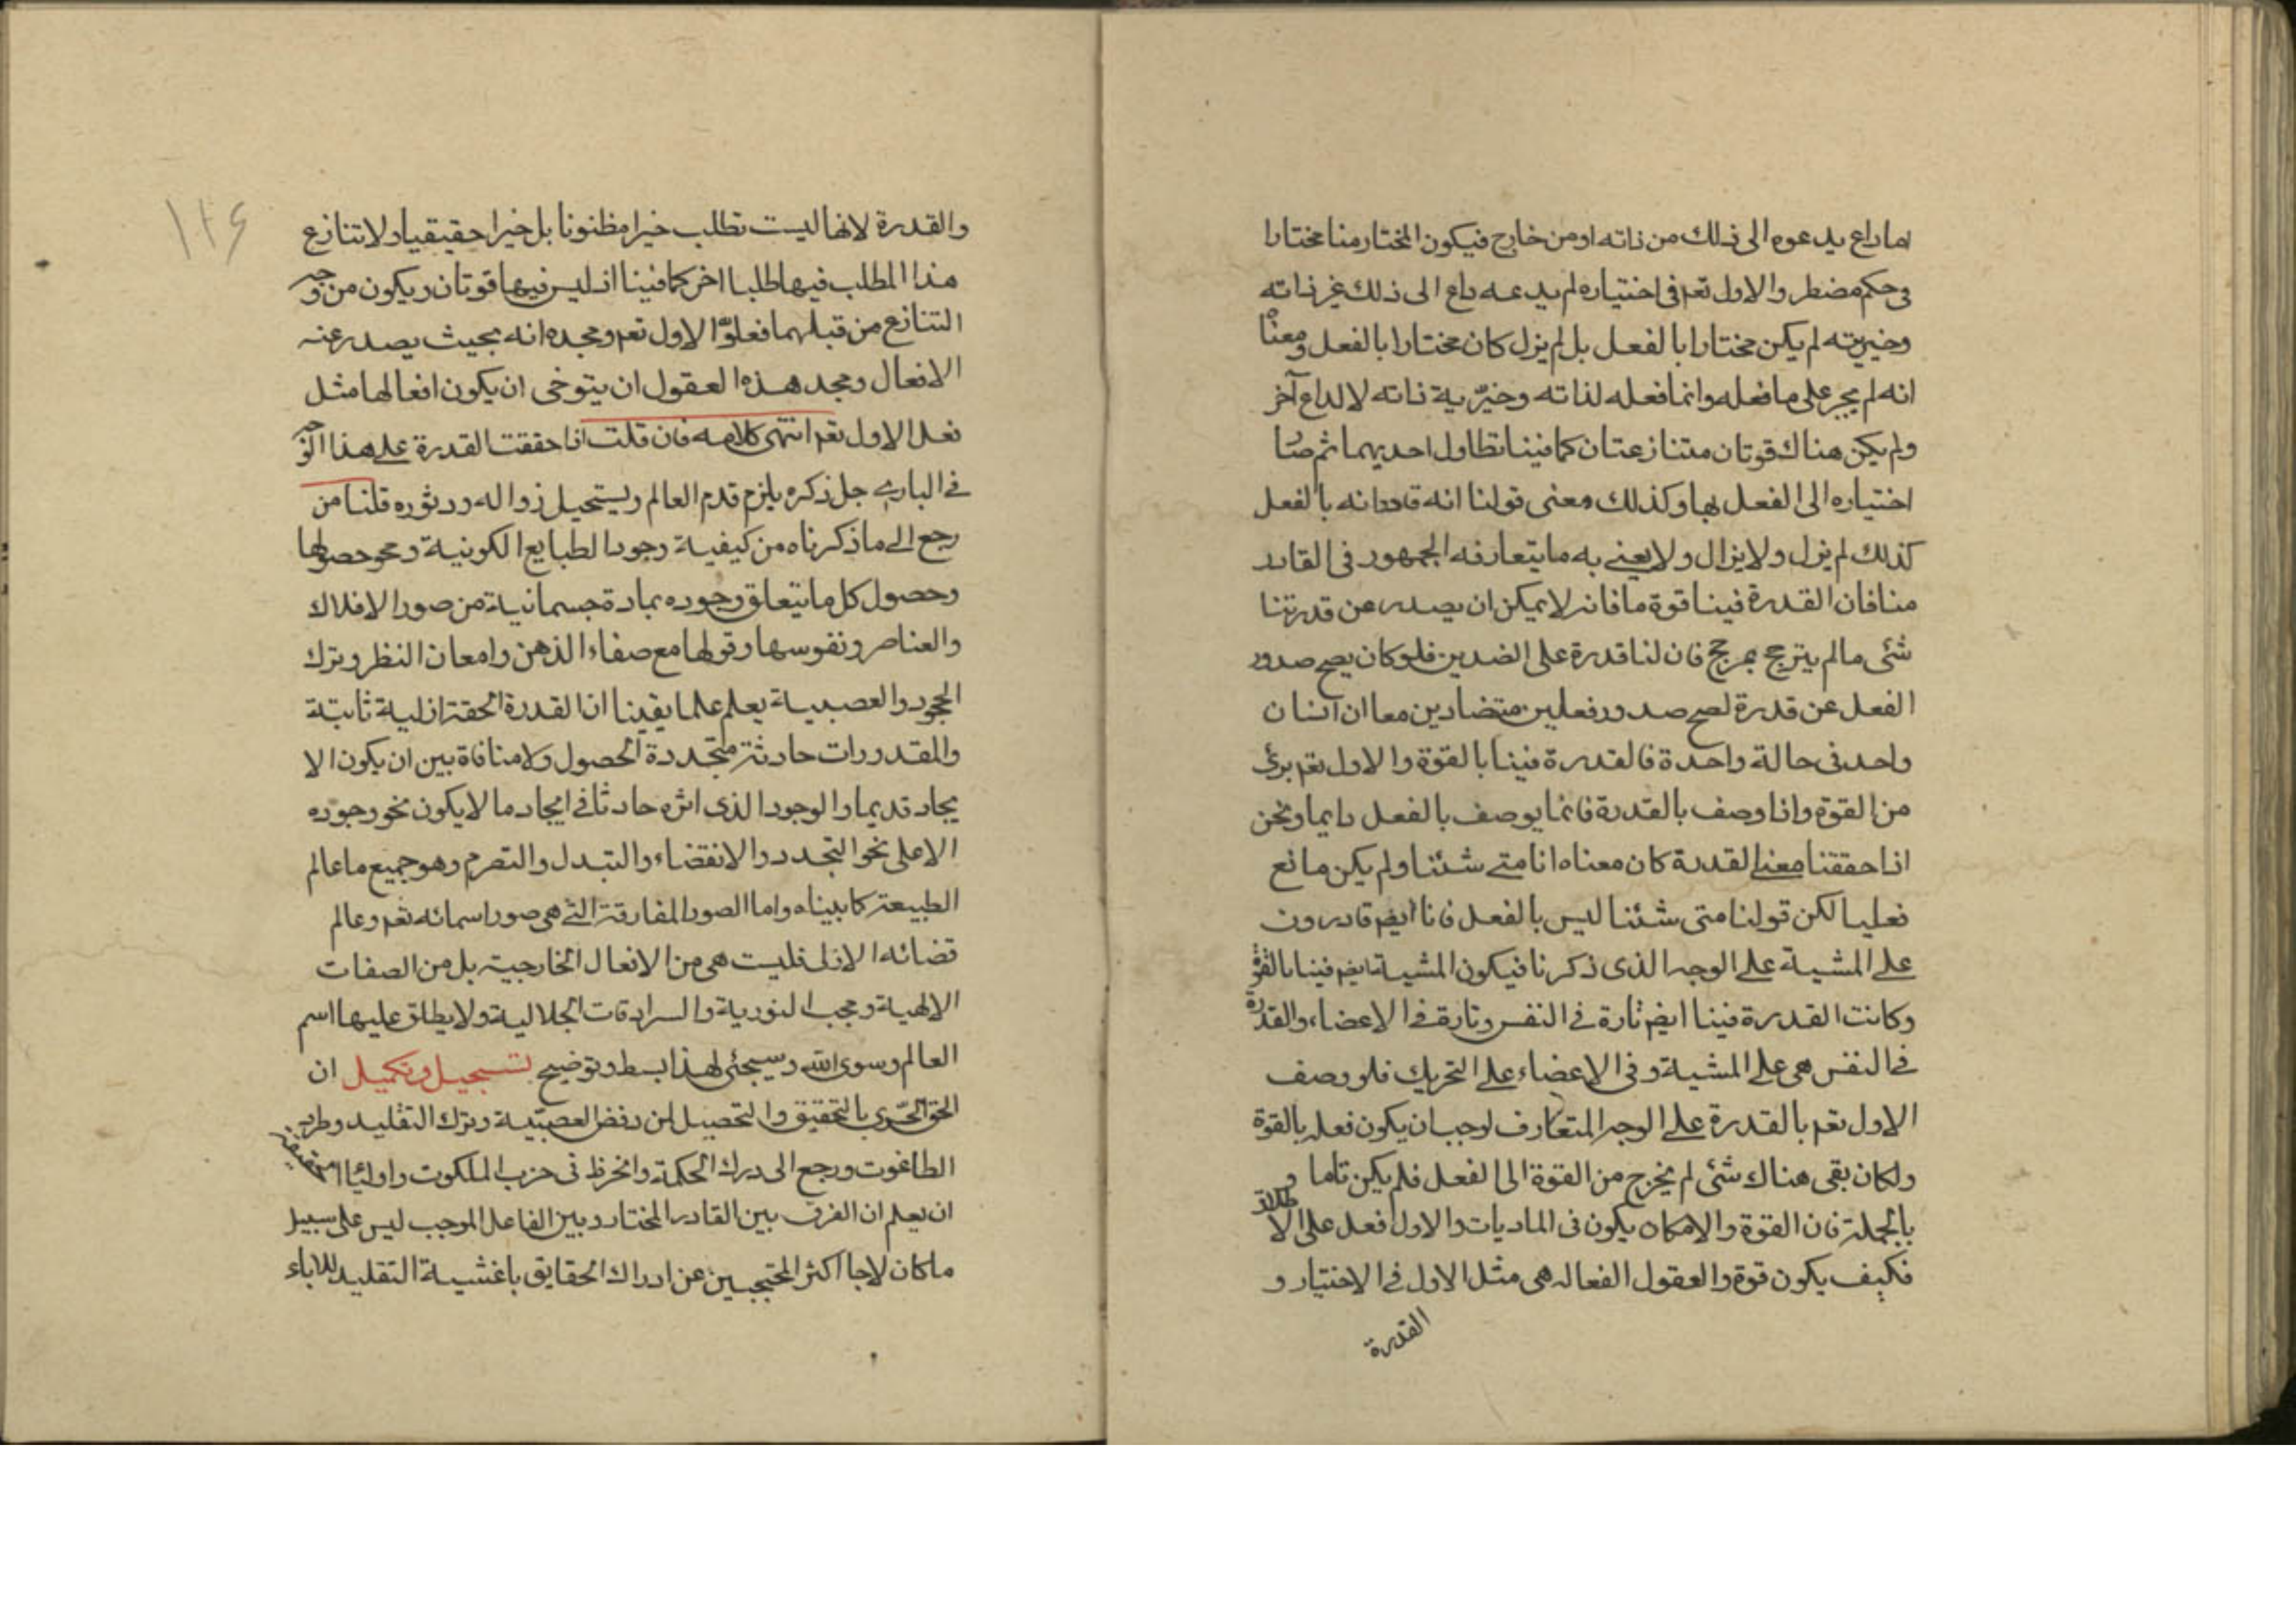 اما داع يدعوه الى ذلك من ذاته او من خارج فيكون المختار منا مختارا
فى حكم مضطر والاول تعم فى اختياره لم يدعه داع الى ذلك غير ذاته
وخيريته لم يكن مختارا بالفعل بل لم يزل كان مختارا بالفعل ومعناه
انه لم يجبر على ما فعله وانما فعله لذاته وخيّرية ذاته لا لداع آخر
ولم يكن هناك قوتان متنازعتان كما فينا تطاول احديهما ثم صار
اختياره الى الفعل بها وكذلك معنى قولنا انه قادر انه بالفعل
كذلك لم يزل ولا يزال ولا يعنى به ما يتعارفه الجمهور فى القادر
منا فان القدرة فينا قوة ما فانه لا يمكن ان يصدر عن قدرتنا
شئى ما لم يترجح بمرجح فان لنا قدرة على الضدين فلو كان يصح صدور
الفعل عن قدرة لصح صدور فعلين متضادين معا ان انسان
واحد فى حالة واحدة فالقدرة فينا بالقوة والاول تعم برئى
من القوة واذا وصف بالقدرة فانما يوصف بالفعل دايما ونحن
اذا حققنا معنى القدرة كان معناه انا متى شئنا ولم يكن مانع
فعليا لكن قولنا متى شئنا ليس بالفعل فانا ايضم قادرون
على المشية على الوجه الذى ذكرنا فيكون المشية ايضم فينا بالقوة
وكانت القدرة فينا ايضم تارة فى النفس وتارة فى الاعضاء والقدرة
فى النفس هى على المشية وفى الاعضاء على التحريك فلو وصف
الاول تعم بالقدرة على الوجه المتعارف لوجب ان يكون فعله بالقوة
ولكان بقى هناك شئى لم يخرج من القوة الى الفعل فلم يكن تاما و
بالجملة فان القوة والامكان يكون فى الماديات والاول فعل على الاطلاق
فكيف يكون قوة والعقول الفعاله هى مثل الاول فى الاختيار و
القدرة
١٢٦
والقدرة لانها ليست تطلب خيرا مظنونا بل خيرا حقيقيا ولا تنازع
هذا المطلب فيها طلبا اخر كما فينا اذ ليس فيها قوتان ويكون من وجه
التنازع من قبلهما فعلوّ الاول تعم ومجده انه بحيث يصدر عنه
الافعال ومجد هذه العقول ان يتوخى ان يكون افعالها مثل
فعل الاول تعم انتهى كلامه فان قلت اذا حققت القدرة على هذا الوجه
فى البارى جل ذكره يلزم قدم العالم ويستحيل زواله ودثوره قلنا من
رجع الى ما ذكرناه من كيفية وجود الطبايع الكونية ونحو حصولها
وحصول كل ما يتعلق وجوده بمادة جسمانية من صور الافلاك
والعناصر ونفوسها وقولها مع صفاء الذهن وامعان النظر وترك
الجحود والعصبية يعلم علما يقينا ان القدرة الحقة ازلية ثابتة
والمقدورات حادثة متجددة الحصول ولا منافاة بين ان يكون الا
يجاد قديما والوجود الذى اثره حادثا فى ايجاد ما لا يكون نحو وجوده
الا على نحو التجدد والانقضاء والتبدل والتصرم وهو جميع ما عالم
الطبيعة كما بيناه واما الصور المفارقة التى هى صور اسمائه تعم وعالم
قضائه الازلى فليست هى من الافعال الخارجية بل من الصفات
الالهية وحجب النورية والسرادقات الجلالية ولا يطلق عليها اسم
العالم وسوى الله وسيجئى لهذا بسط وتوضيح تسجيل وتكميل ان
الحق الحرّى بالتحقيق والتحصيل لمن رفض العصبّية وترك التقليد وطرح
الطاغوت ورجع الى درك الحكمة وانخرط فى حزب الملكوت واوليا
ان يعلم ان الفرق بين القادر المختار وبين الفاعل الموجب ليس على سبيل
ما كان لاجا اكثر المحتجبين عن ادراك الحقايق باغشية التقليد للاباء